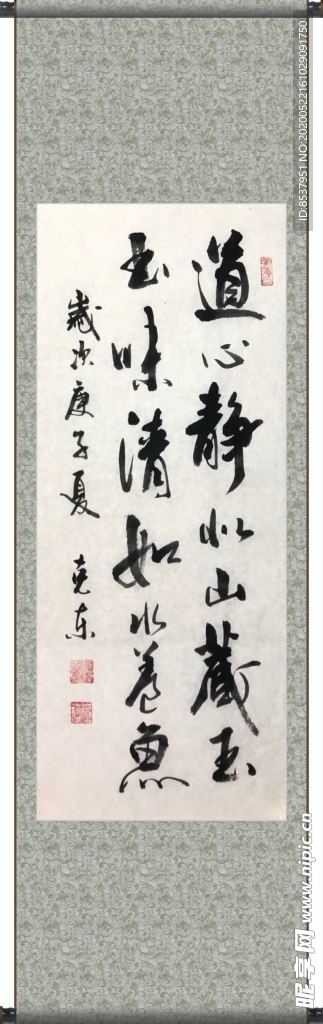 道心静似山藏玉
书味清如水养鱼
岁次庚子夏 克东
ID:8537951 NO:20200522161029091750
昵享网 www.nipic.cn